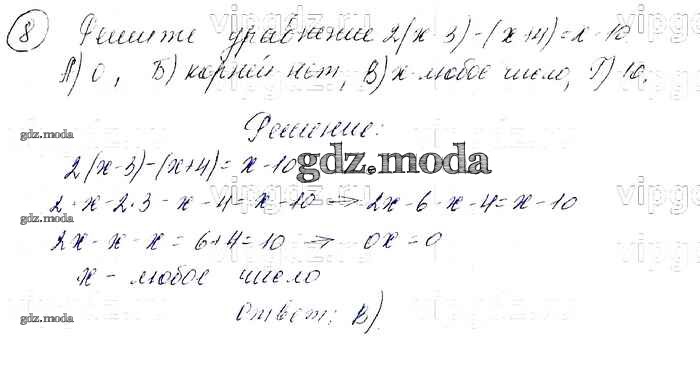 8 Решите уравнение 2(x-3)-(x+4)=x-10
А) 0, Б) корней нет, В) x-любое число, Г) 10.
Решение:
2(x-3)-(x+4)=x-10
2·x-2·3-x-4=x-10 → 2x-6-x-4=x-10
2x-x-x=6+4=10 → 0x=0
x- любое число
Ответ: В)
gdz.moda
gdz.moda
gdz.moda
gdz.moda
gdz.moda